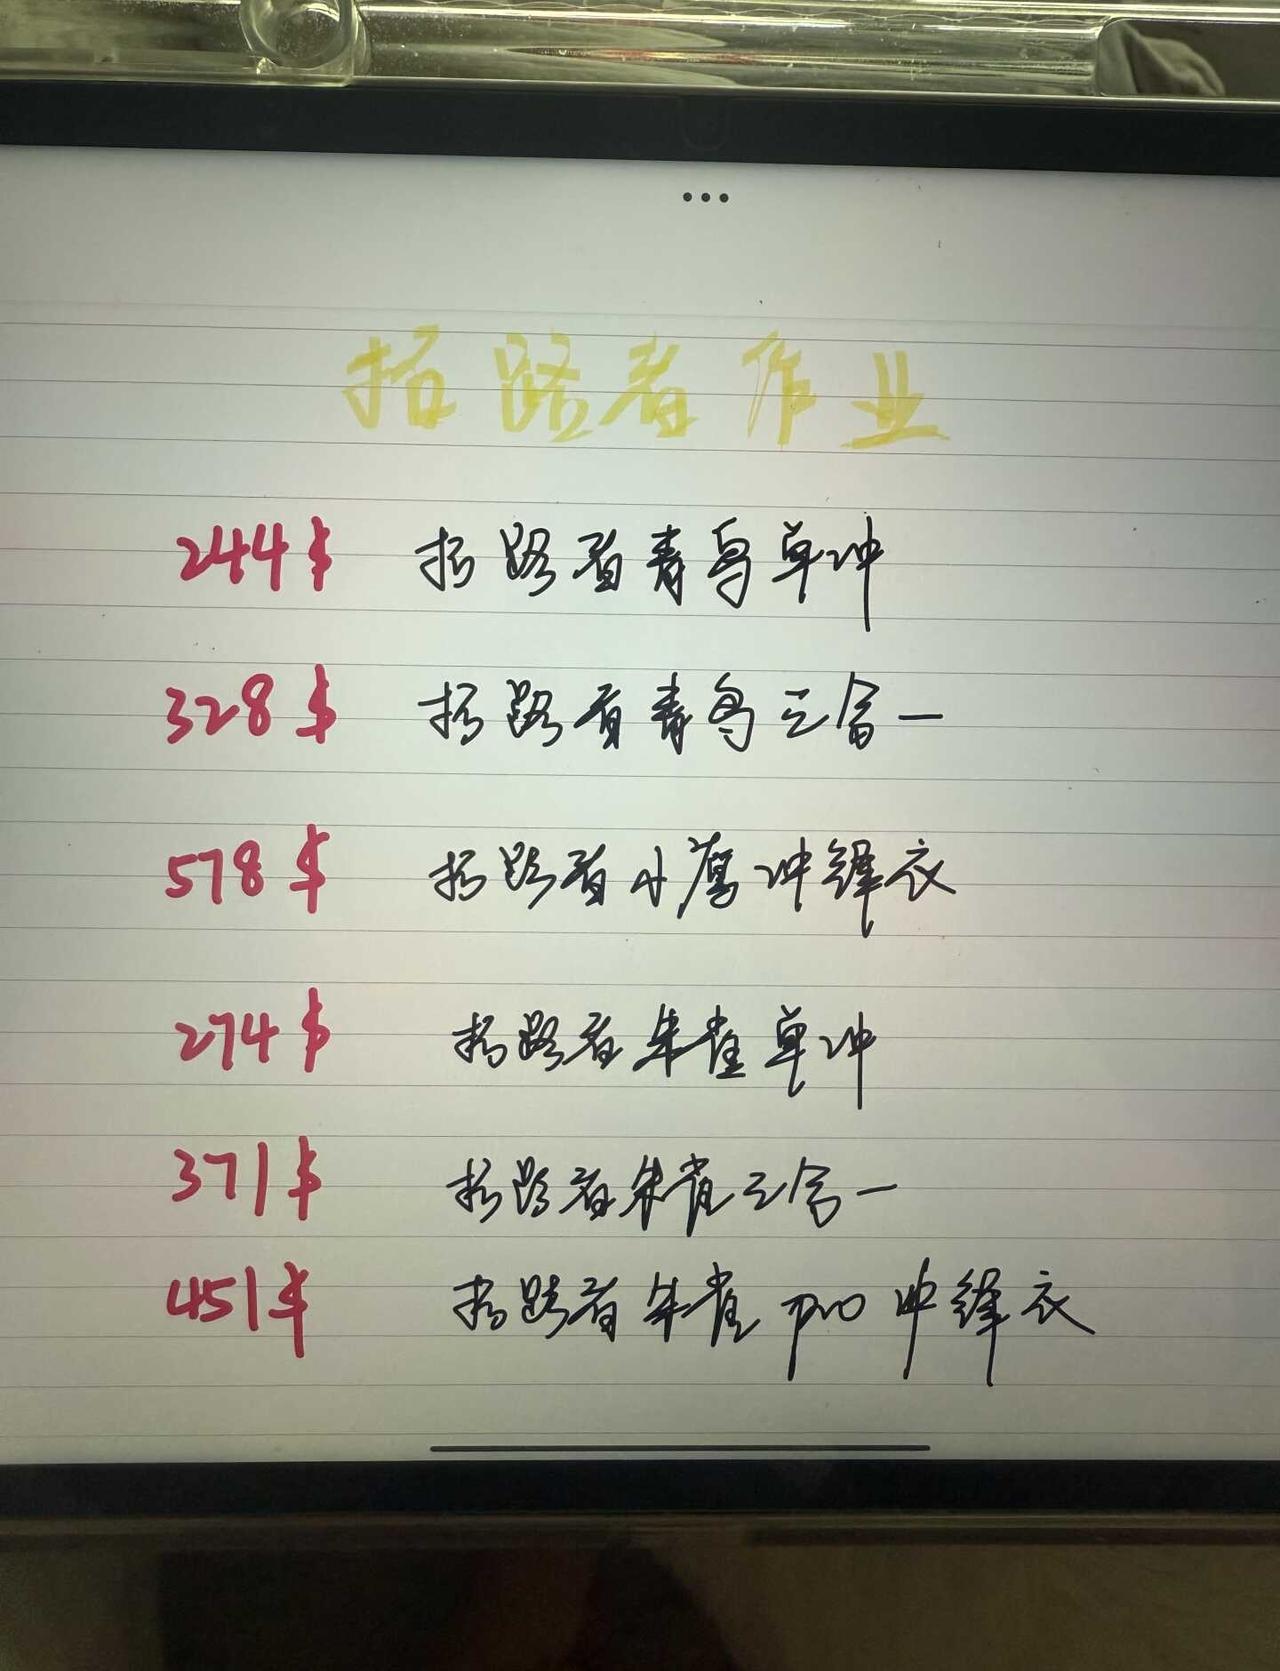 拓路者作业
244$ 拓路者青鸟单冲
328$ 拓路者青鸟三合一
578$ 拓路者小鹰冲锋衣
274$ 拓路者朱雀单冲
371$ 拓路者朱雀三合一
451$ 拓路者朱雀pro冲锋衣